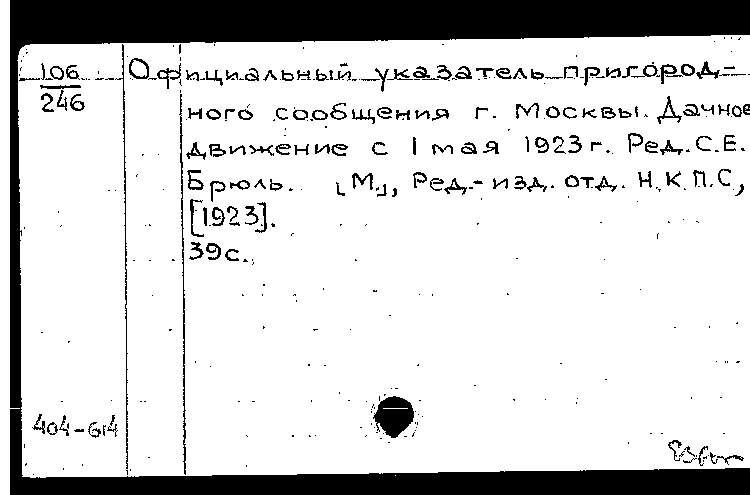 106
246
Официальный указатель пригород-
ного сообщения г. Москвы. Дачное
движение с 1 мая 1923 г. Ред. С.Е.
Брюль. [М.], Ред.-изд. отд. Н.К.П.С,
[1923].
39с.
404-614